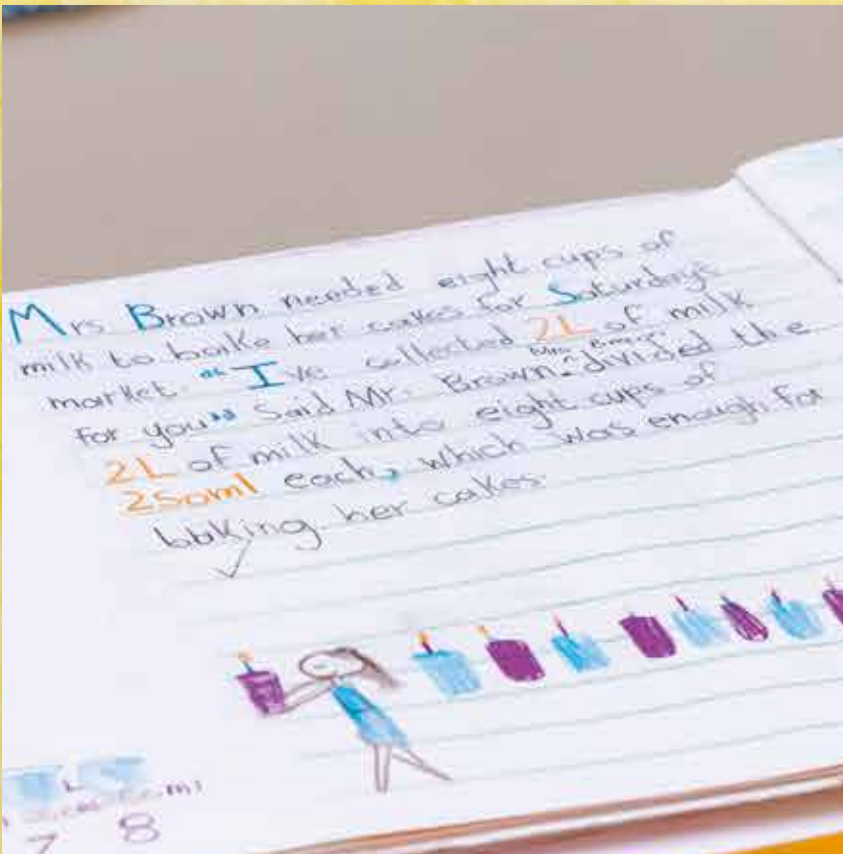 Mrs. Brown needed eight cups of
milk to bake her cakes for Saturday's
market. "I've collected 2L of milk
for you" Said Mr. Brown. Mrs. Brown divided the
2L of milk into eight cups of
250ml each, which was enough for
bbking her cakes.
ml
7 8